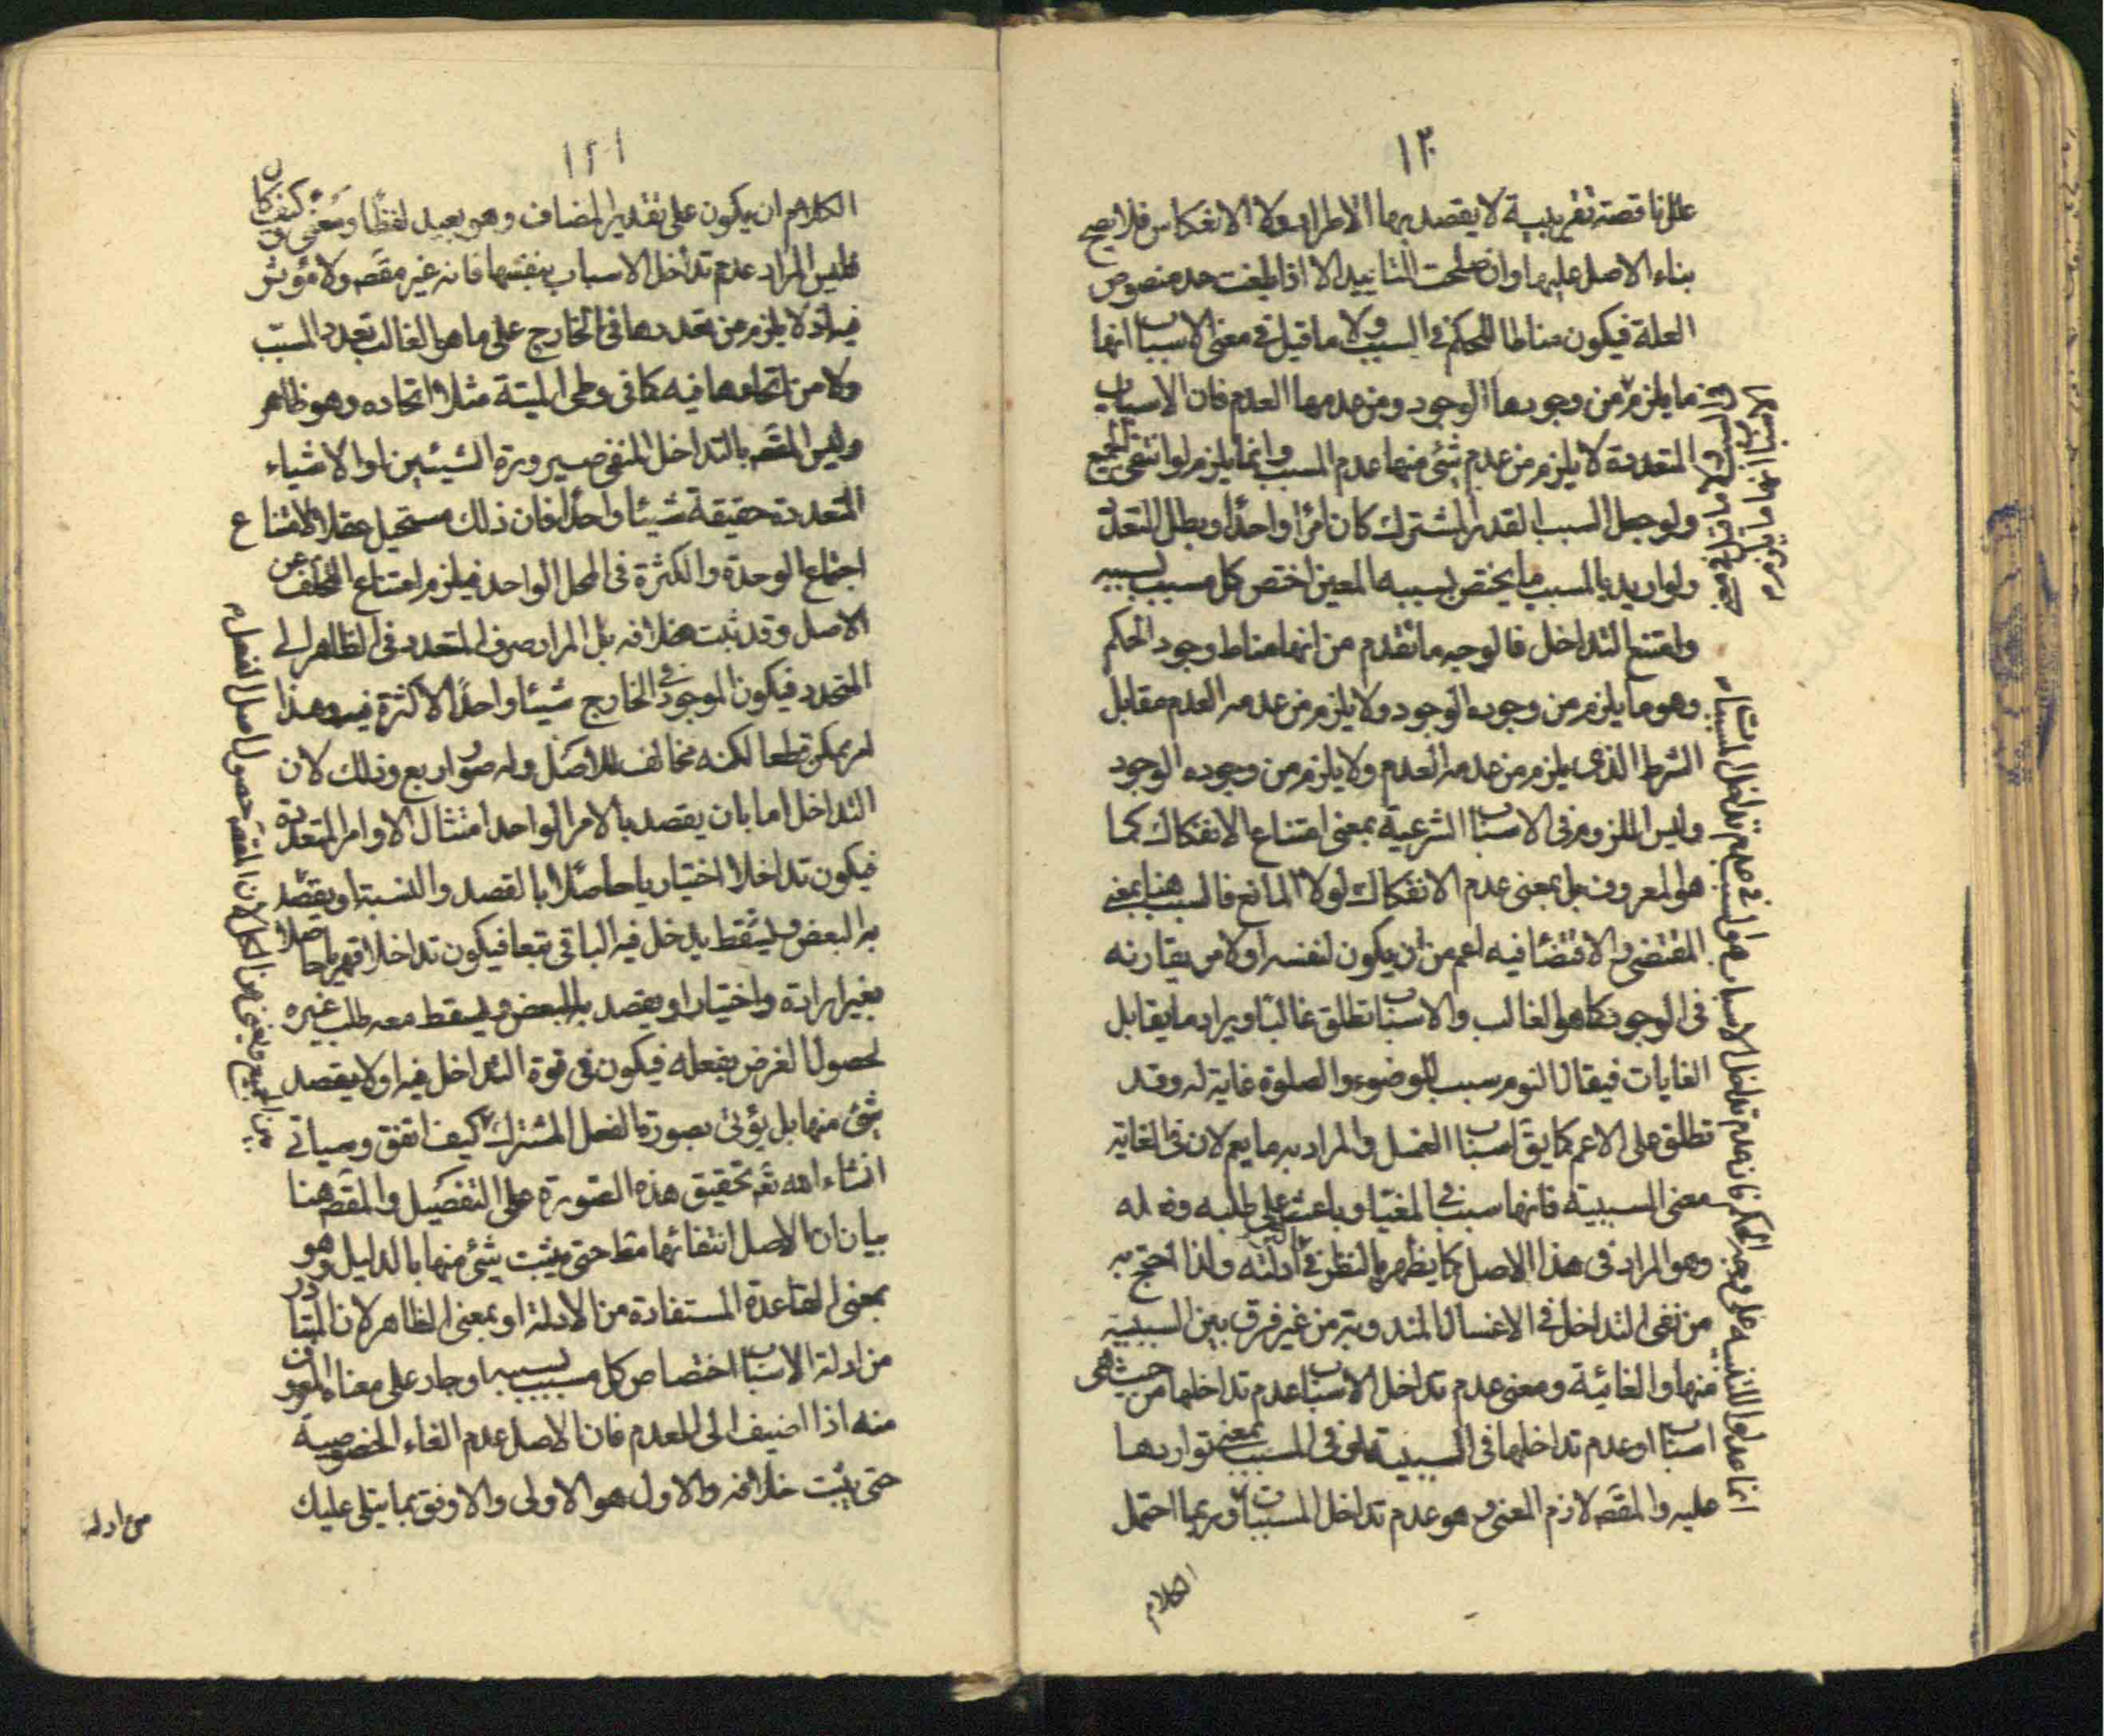 ١٢٠
علل ناقصة تقريبية لا يقصد بها الاطراد ولا الانعكاس فلا يصح
بناء الاصل عليها وان صلحت للتاييد الا اذا بلغت حد منصوص
العلة فيكون مناطا للحكم في السبب ولا ما قيل في معنى الاسباب انها
ما يلزم من وجودها الوجود ومن عدمها العدم فان الاسباب
المتعددة لا يلزم من عدم شئ منها عدم المسبب وانما يلزم لو انتفى الجميع
ولو جعل السبب القدر المشترك كان امرا واحدا وبطل التعدد
ولو اريد بالمسبب ما يختص بسببه المعين اختص كل مسبب بسببه
وامتنع التداخل فالوجه ما تقدم من انها مناط وجود الحكم
وهو ما يلزم من وجوده الوجود ولا يلزم من عدمه العدم مقابل
الشرط الذى يلزم من عدمه العدم ولا يلزم من وجوده الوجود
وليس اللزوم في الاسباب الشرعية بمعنى امتناع الانفكاك كما
هو المعروف بل بمعنى عدم الانفكاك لولا المانع فالسبب هنا بمعنى
المقتضى والاقتضاء فيه اعم من ان يكون لنفسه او لامر يقارنه
فى الوجود كما هو الغالب والاسباب تطلق غالبا ويراد ما يقابل
الغايات فيقال النوم سبب للوضوء والصلوة غاية له وقد
تطلق على الاعم كما يق اسباب الغسل والمراد به ما يعم لان في الغاية
معنى السببية فانها سبب في المغيا وباعث على طلبه
وهو المراد فى هذا الاصل كما يظهر بالنظر في ادلته ولذا احتج به
من نفى التداخل في الاغسال المندوبة من غير فرق بين السببية
منها والغائية ومعنى عدم تداخل الاسباب عدم تداخلها من حيث هى
اسباب او عدم تداخلها فى السببية في المسبب بمعنى تواردها
عليه والمقصد لازم المعنى وهو عدم تداخل المسببات وربما احتمل
الكلام
١٢١
الكلام ان يكون على تقدير المضاف وهو بعيد لفظا ومعنى وكيف كان
فليس المراد عدم تداخل الاسباب بنفسها فانه غير مقصد ولا مؤثر
فيه اذ لا يلزم من تعددها فى الخارج على ما هو الغالب تعدد المسبب
ولا من اتحادها فيه كما فى وطى الميتة مثلا اتحاده وهو ظاهر
وليس المقصد بالتداخل المنفى صيرورة الشيئين او الاشياء
المتعددة حقيقة شيئا واحدا فان ذلك مستحيل عقلا لامتناع
اجتماع الوحدة والكثرة فى المحل الواحد فيلزم امتناع التخلف عن
الاصل وقد ثبت خلافه بل المراد صرف المتعدد فى الظاهر الى
المتحد فيكون الموجود فى الخارج شيئا واحدا لا كثرة فيه وهذا
امر يمكن قطعا لكنه مخالف للاصل وله صور اربع وذلك لان
التداخل اما بان يقصد بالامر الواحد امتثال الاوامر المتعددة
فيكون تداخلا اختياريا حاصلا بالقصد والنسبة او يقصد
به البعض وليسقط يدخل فيه الباقى تبعا فيكون تداخلا قهريا حاصلا
بغير ارادة واختيار او يقصد به البعض ويسقط معه طلب غيره
لحصول الغرض بفعله فيكون فى قوة التداخل فيه او لا يقصد
شئ منها بل يؤتى بصورة الفعل المشترك كيف اتفق وسياتى
انشاء الله تعم تحقيق هذه الصورة على التفصيل والمقصد هنا
بيان ان الاصل انتفائها مط حتى يثبت شئ منها بالدليل وهو
بمعنى القاعدة المستفادة من الادلة او بمعنى الظاهر لان المتبادر
من ادلة الاسباب اختصاص كل مسبب بسببه او جار على معناه المعروف
منه اذا اضيف الى العدم فان الاصل عدم الغاء الخصوصية
حتى يثبت خلافه والاول هو الاولى والاوفق بما يتلى عليك
من ادلة